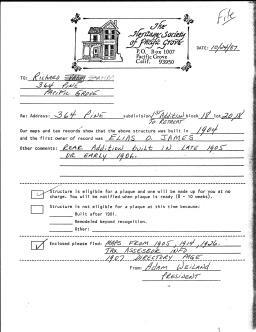 File
The
Heritage Society
of Pacific Grove
P.O. Box 1007
Pacific Grove
Calif. 93950
DATE: 10/04/87
TO: RICHARD
364 PINE
PACIFIC GROVE
Re: Address: 364 PINE subdivision 1ST Addition block 18 lot 20,18
TO RETREAT
Our maps and tax records show that the above structure was built in 1904
and the first owner of record was ELIAS O. JAMES
Other comments: REAR ADDITION BUILT IN LATE 1905
OR EARLY 1906.
Structure is eligible for a plaque and one will be made for you at no
charge. You will be notified when plaque is ready (8 - 10 weeks).
Structure is not eligible for a plaque at this time because:
Built after 1901.
Remodeled beyond recognition.
Other:
Enclosed please find: MAPS FROM 1905, 1914, 1926.
TAX ASSESSOR INFO
1907 DIRECTORY PAGE
From: ADAM WEILAND
PRESIDENT